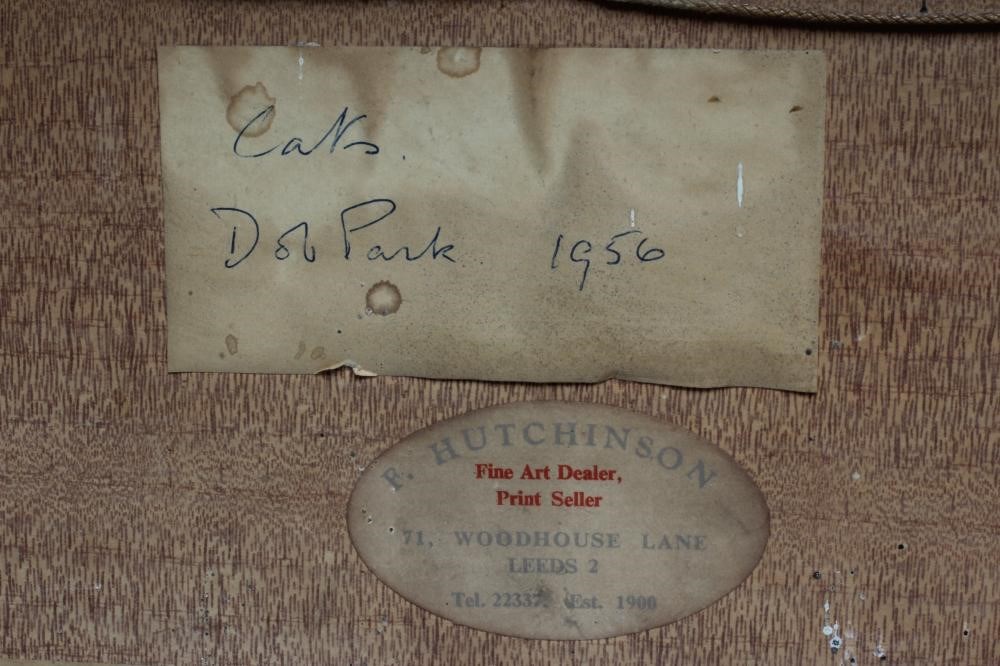 Cats.
Dob Park 1956
F. HUTCHINSON
Fine Art Dealer,
Print Seller
71, WOODHOUSE LANE
LEEDS 2
Tel. 22337. Est. 1900